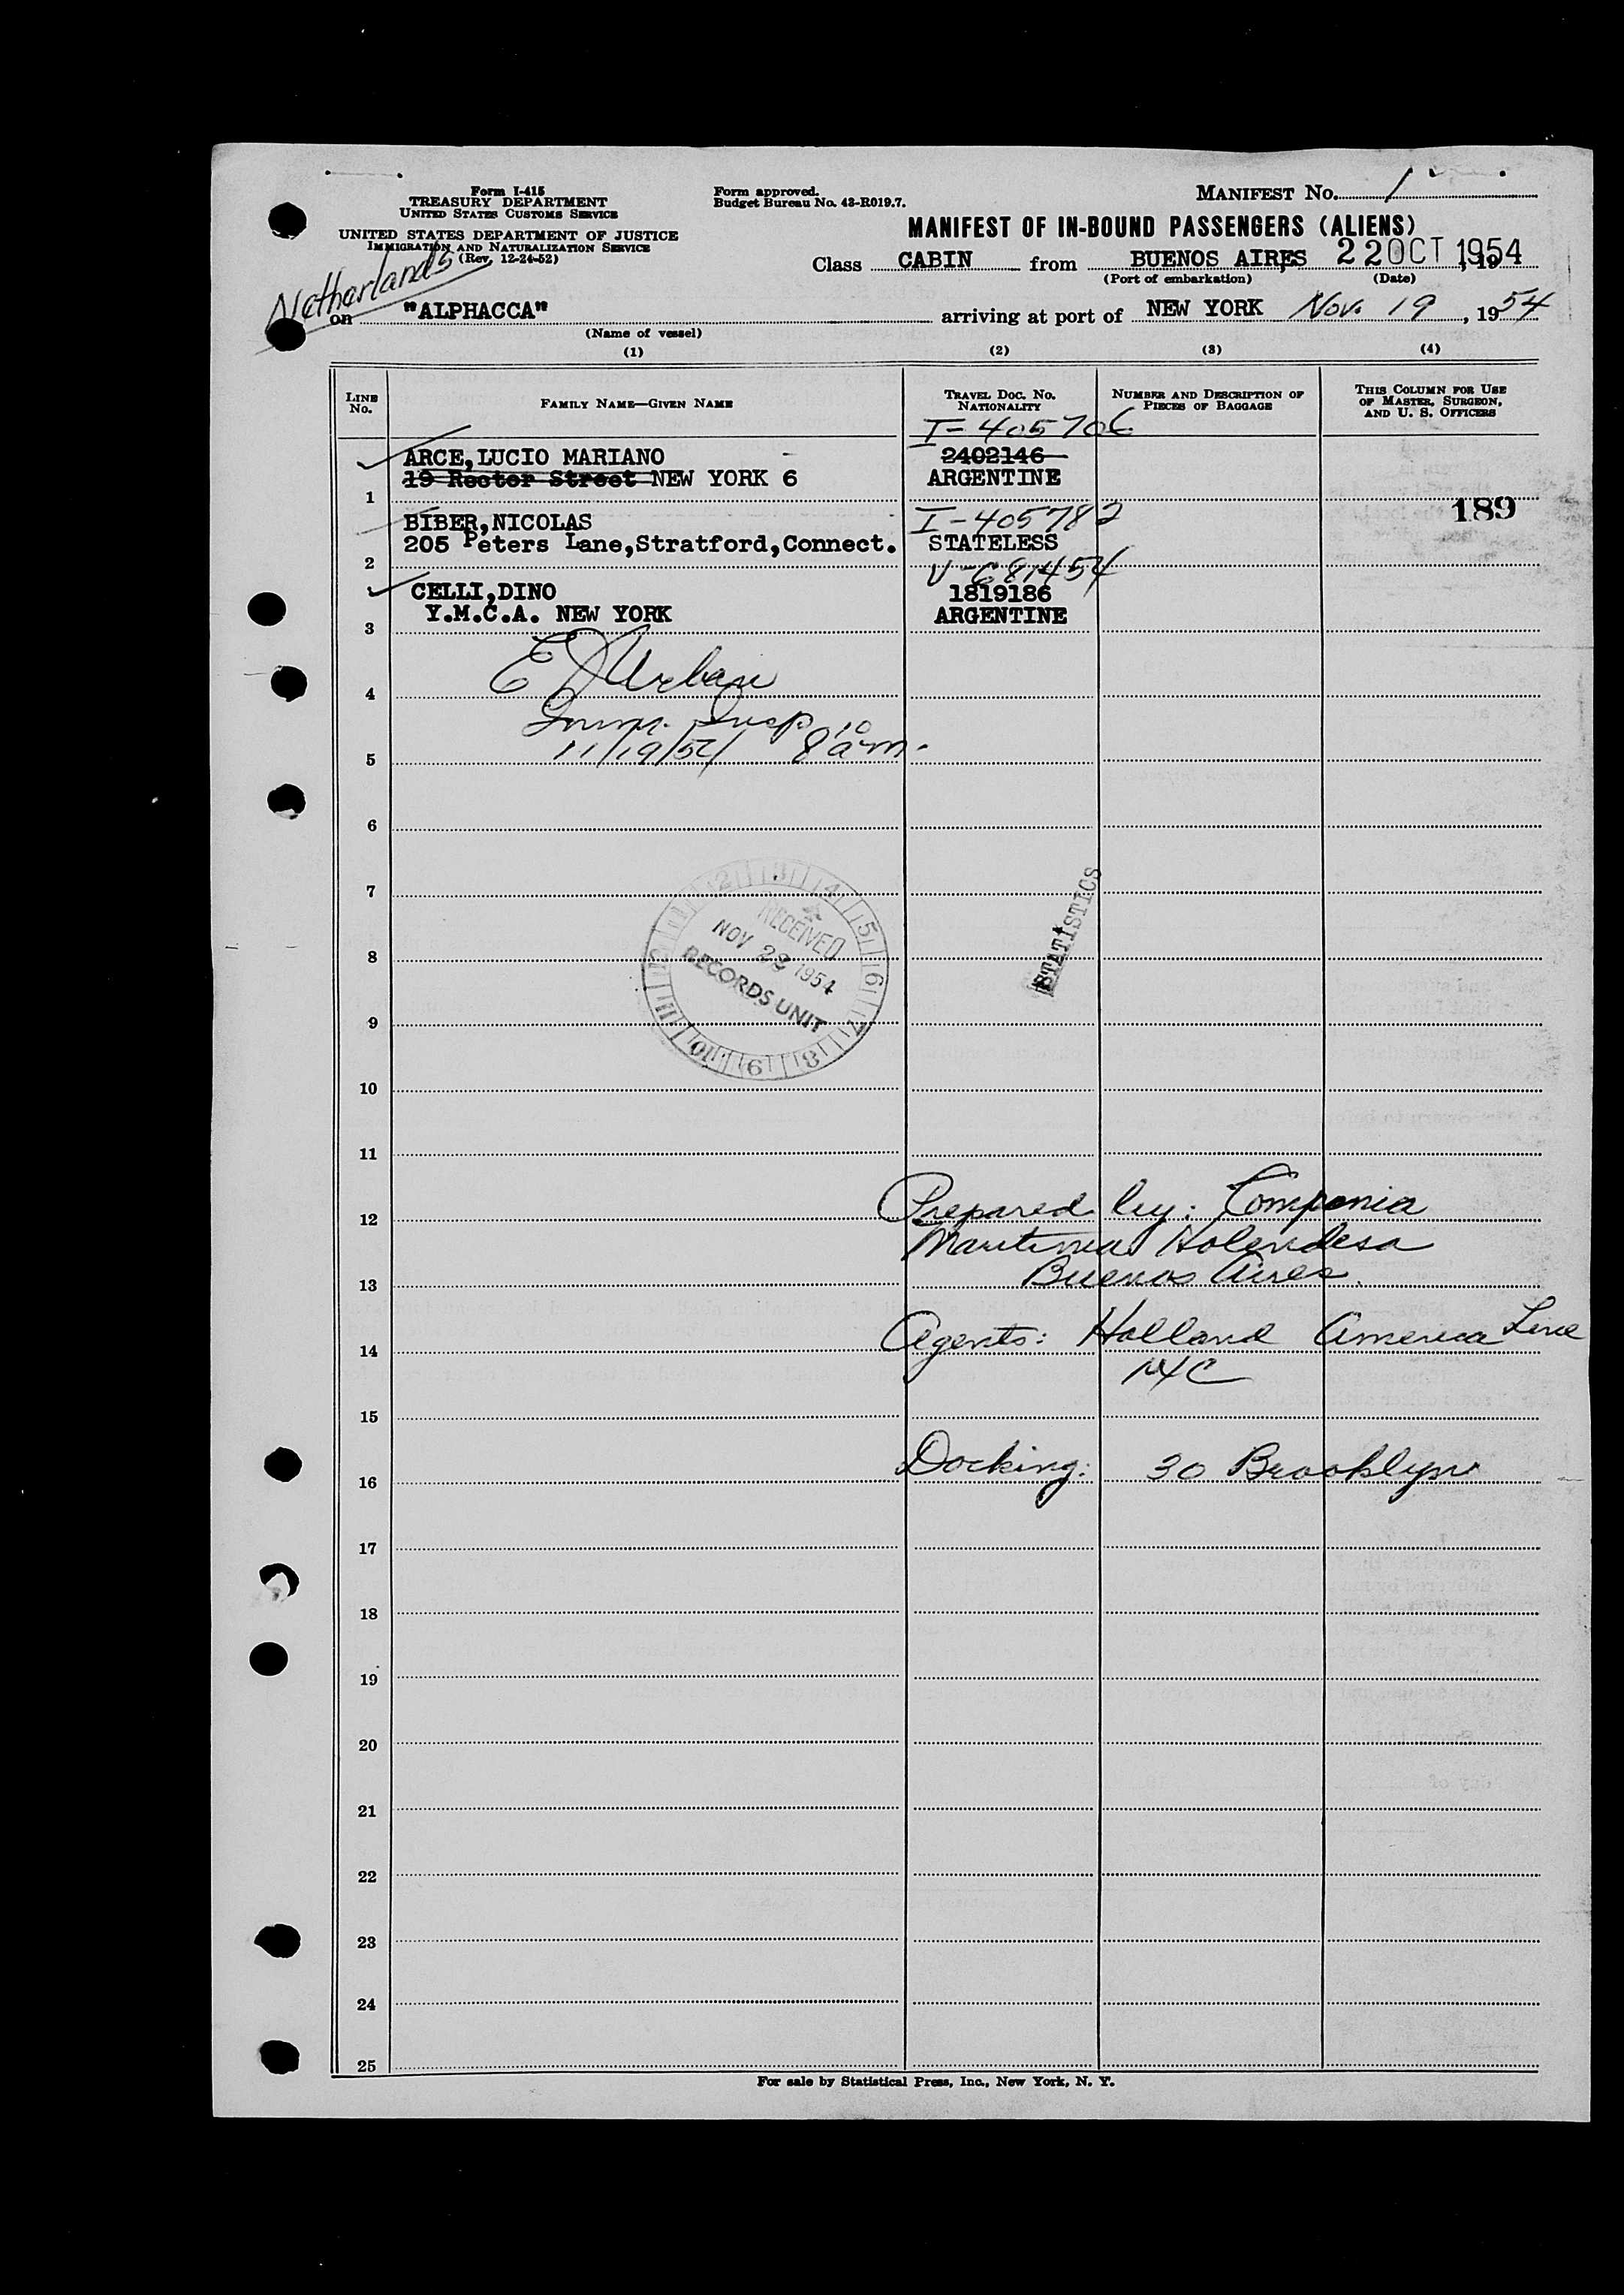 Form I-415
TREASURY DEPARTMENT
UNITED STATES CUSTOMS SERVICE
UNITED STATES DEPARTMENT OF JUSTICE
IMMIGRATION AND NATURALIZATION SERVICE
(Rev. 12-24-52)
Form approved.
Budget Bureau No. 43-R019.7.
MANIFEST NO. 1
MANIFEST OF IN-BOUND PASSENGERS (ALIENS)
Class CABIN from BUENOS AIRES 22 OCT 1954, 19
(Port of embarkation) (Date)
Netherlands
on "ALPHACCA" arriving at port of NEW YORK Nov. 19, 1954
(Name of vessel)
(1) (2) (3) (4)
LINE NO. FAMILY NAME—GIVEN NAME TRAVEL DOC. NO. NATIONALITY NUMBER AND DESCRIPTION OF PIECES OF BAGGAGE THIS COLUMN FOR USE OF MASTER, SURGEON, AND U. S. OFFICERS
I-405706
ARCE,LUCIO MARIANO 2402146
19 Rector Street NEW YORK 6 ARGENTINE
1
189
BIBER,NICOLAS I-405782
205 Peters Lane,Stratford,Connect. STATELESS
2
V-681454
CELLI,DINO 1819186
Y.M.C.A. NEW YORK ARGENTINE
3
E J Urban
4
Imm. Insp 10
11/19/54 8 am.
5
6
7
STATISTICS
RECEIVED
NOV 1954
RECORDS UNIT
8
9
10
11
Prepared by: Compania
12
Maritima Holandesa
Buenos Aires.
13
Agents: Holland America Line
14
NYC
15
Docking: 30 Brooklyn
16
17
18
19
20
21
22
23
24
25
For sale by Statistical Press, Inc., New York, N. Y.